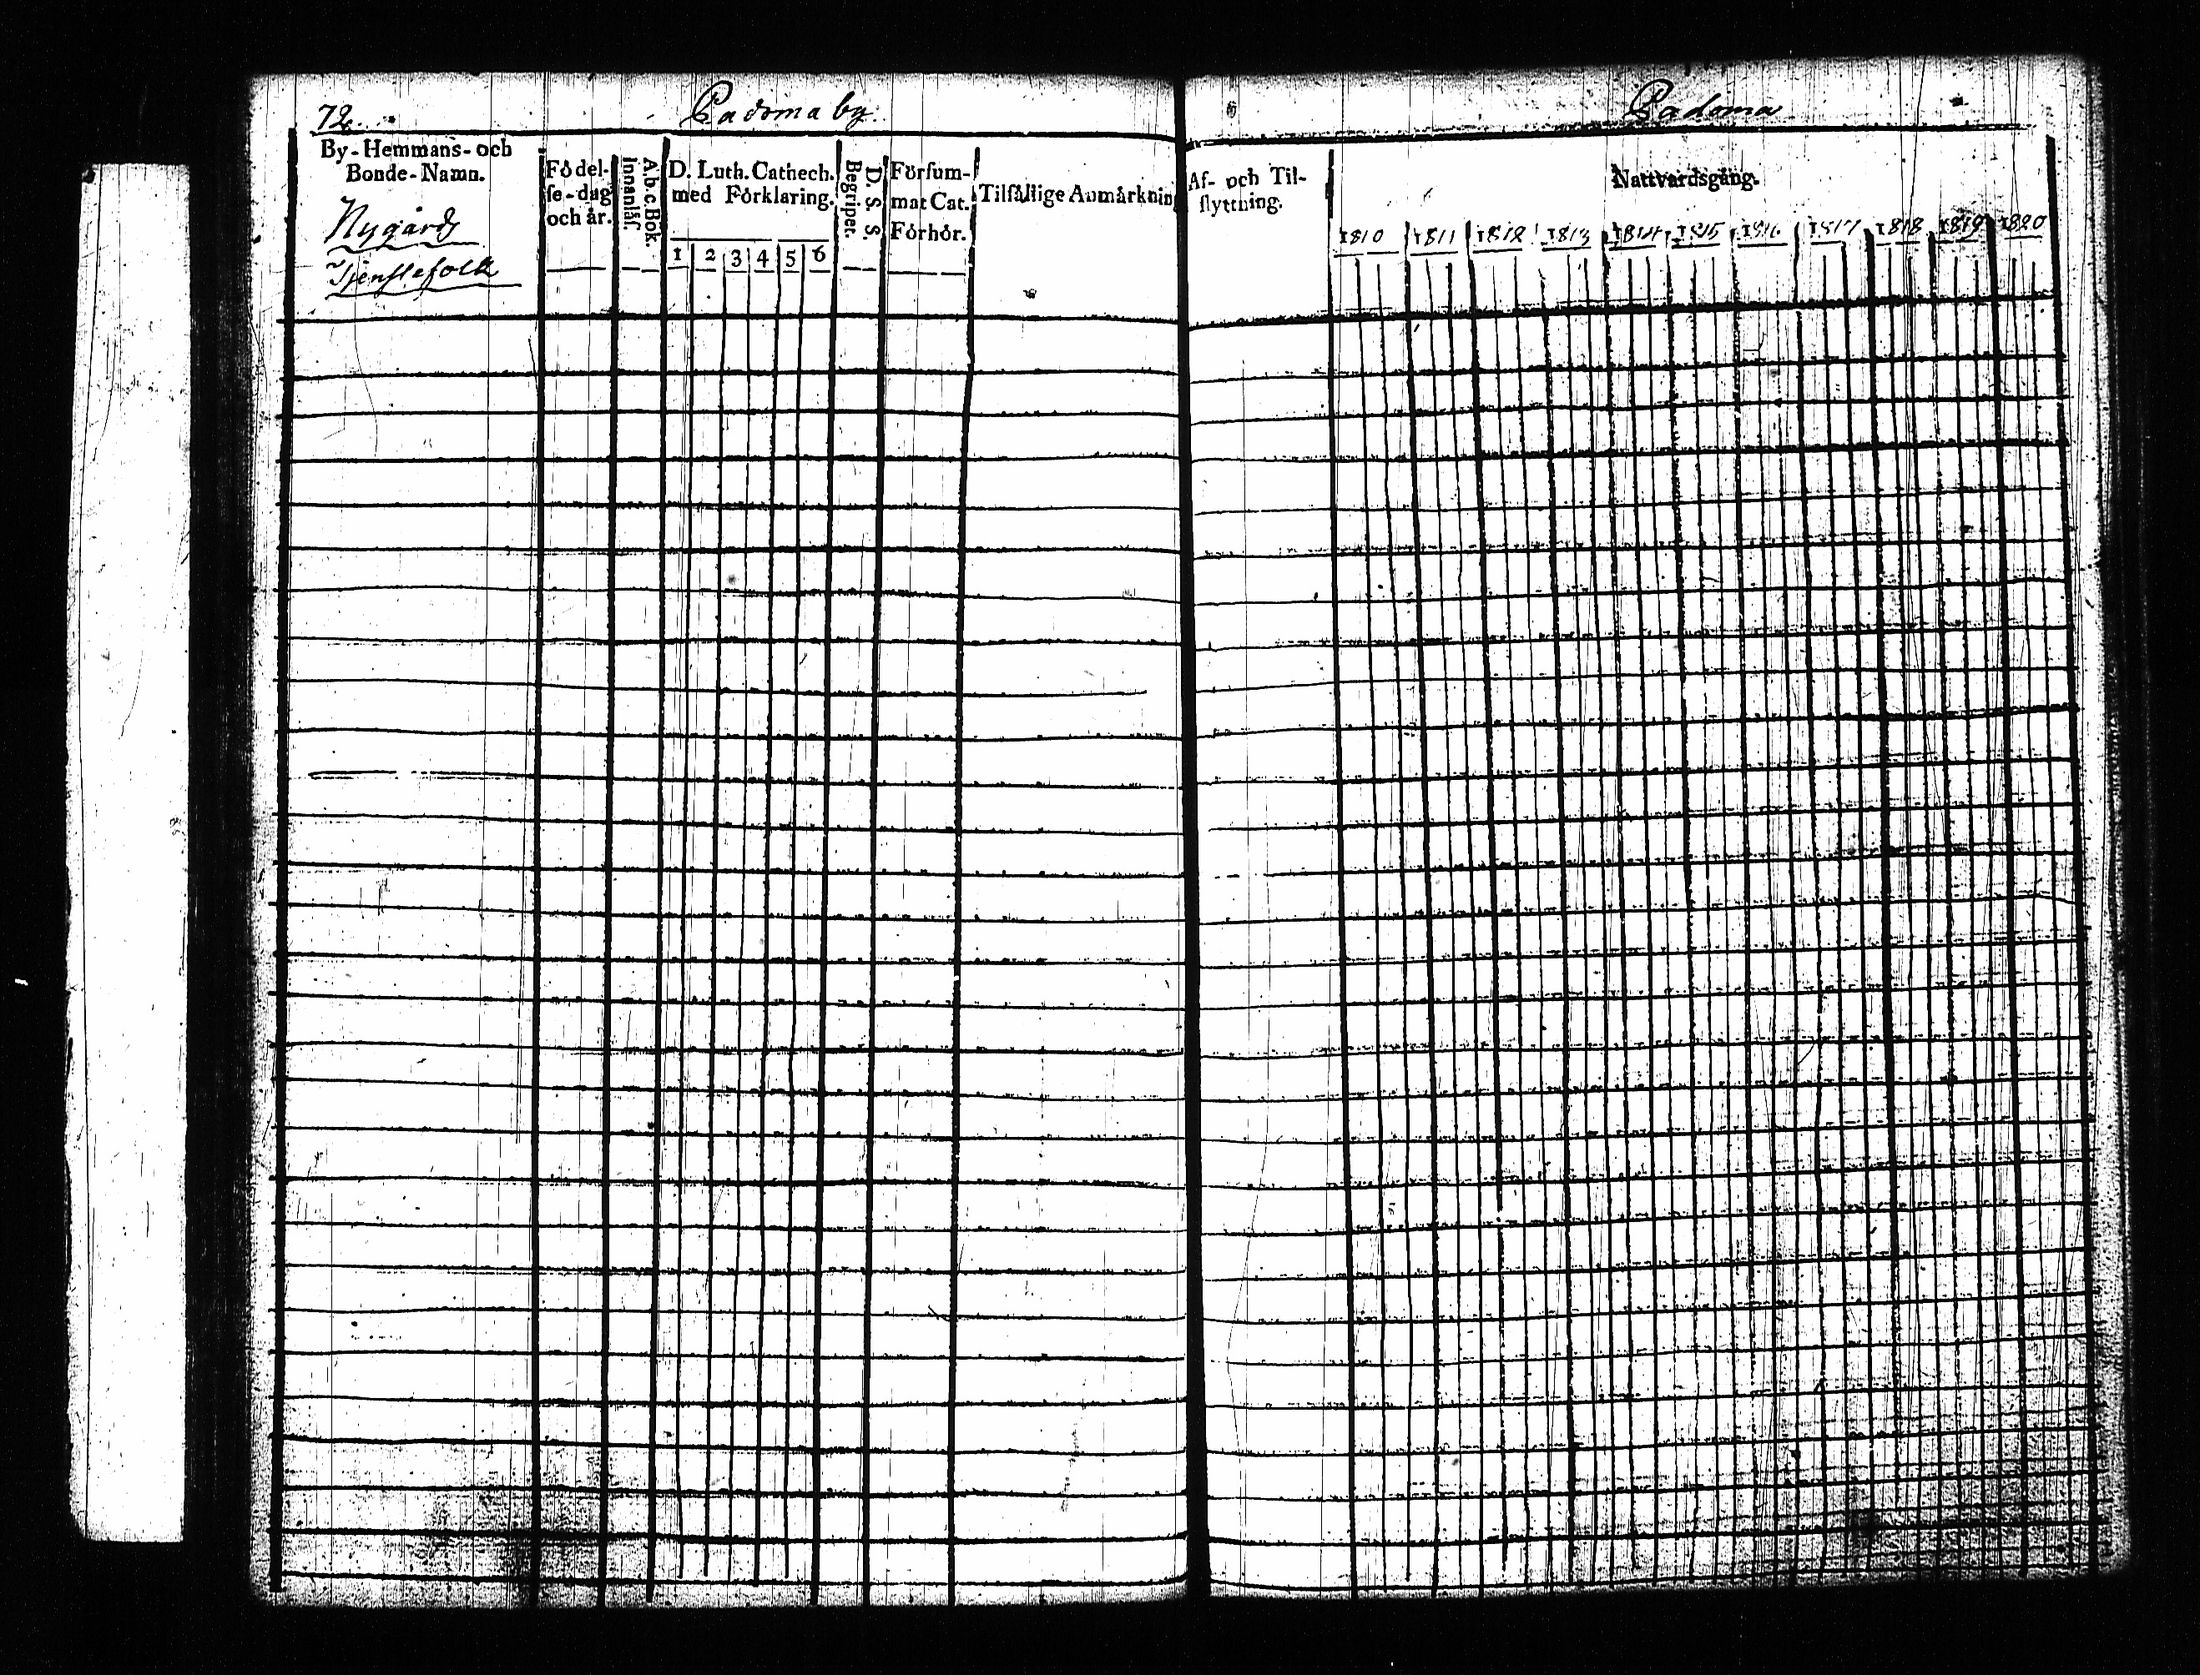 72.
Padoma by.
By-Hemmans- och
Bonde-Namn.
Nygårds
Tjenstefolk
Födel-
se-dag
och år.
A.b.c.Bok.
Innanläs.
D. Luth. Cathech.
med Förklaring.
1 2 3 4 5 6
D. S. S.
Begriper.
Försum-
mat Cat.
Förhör.
Tilfällige Anmärknin
Padoma
Af- och Til-
flyttning.
Nattvardsgång.
1810 1811 1812 1813 1814 1815 1816 1817 1818 1819 1820